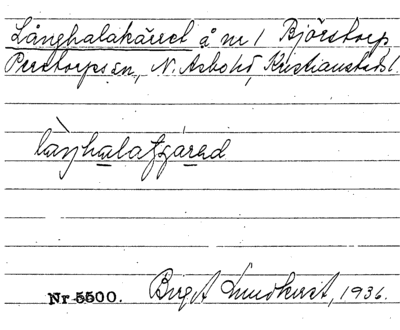 Långhalakärret å nr 1 Björstorp,
Perstorps sn, N. Åsbo hd, Kristianstads l.
làŋhalatɕärad
Nr 5500. Birgit Lundkvist, 1936.